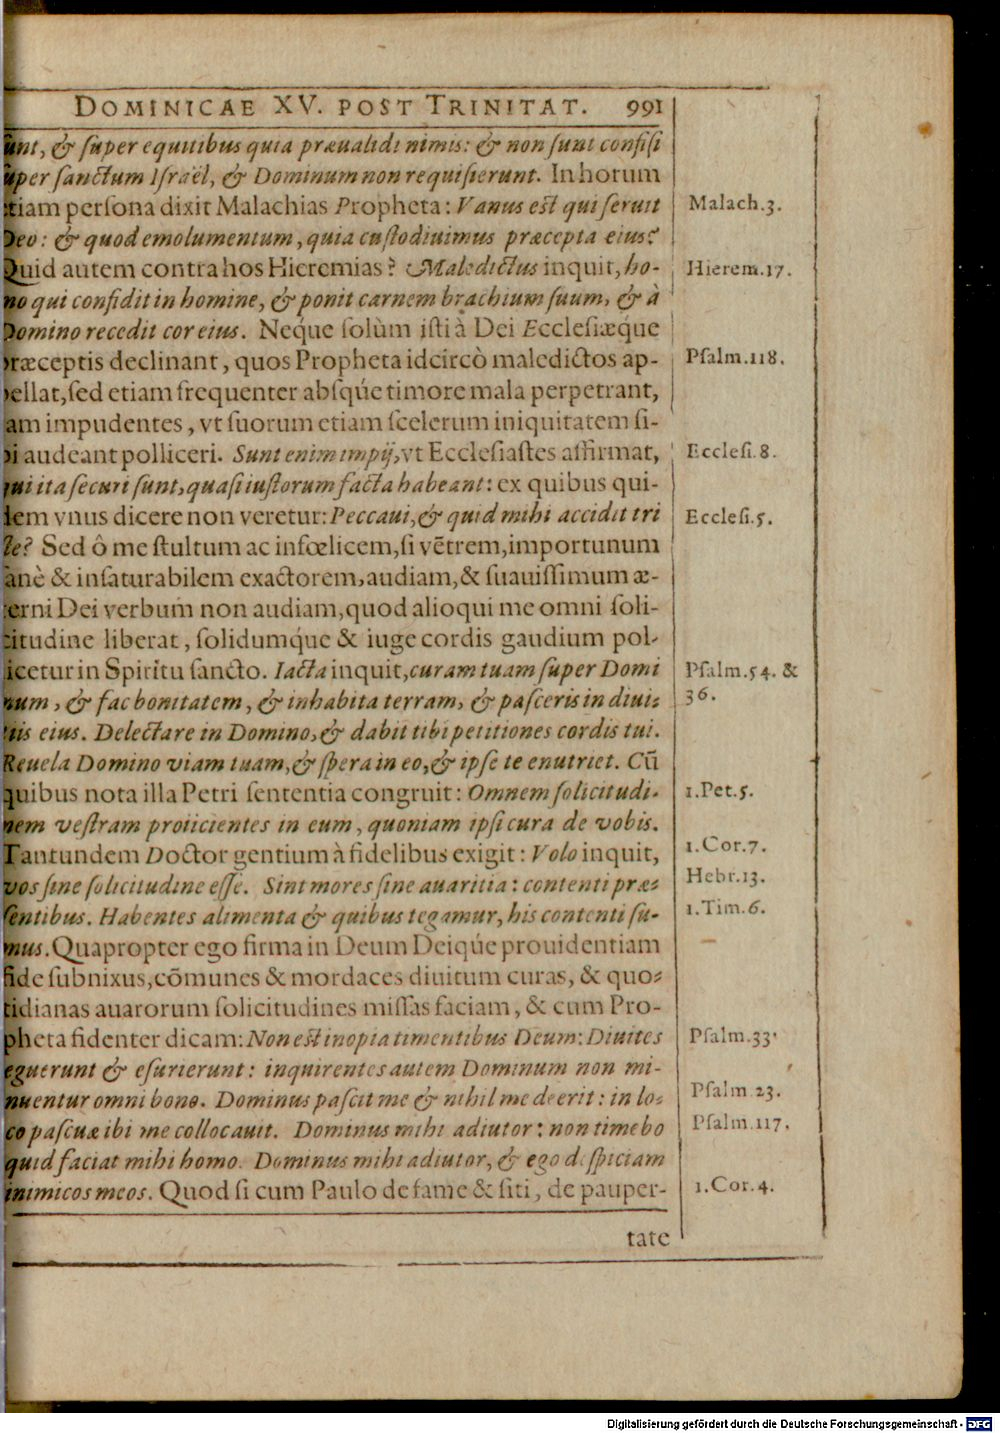 DOMINICAE XV. POST TRINITAT. 991
ũnt, & ſuper equitibus quia præualidi nimis: & non ſunt confiſi
ſuper ſanctum Iſraël, & Dominum non requiſierunt. In horum
etiam perſona dixit Malachias Propheta: Vanus eſt qui ſeruit
Malach.3.
Deo: & quod emolumentum, quia cuſtodiuimus præcepta eius?
Quid autem contra hos Hieremias? Maledictus inquit, ho-
Hierem.17.
mo qui confidit in homine, & ponit carnem brachium ſuum, & à
Domino recedit cor eius. Neque ſolùm iſti à Dei Eccleſiæque
præceptis declinant, quos Propheta idcircò maledictos ap-
Pſalm.118.
pellat, ſed etiam frequenter abſq́ue timore mala perpetrant,
tam impudentes, vt ſuorum etiam ſcelerum iniquitatem ſi-
bi audeant polliceri. Sunt enim impij, vt Eccleſiaſtes affirmat,
Eccleſi.8.
qui ita ſecuri ſunt, quaſi iuſtorum facta habeant: ex quibus qui-
dem vnus dicere non veretur: Peccaui, & quid mihi accidit tri
Eccleſi.5.
ſte? Sed ô me ſtultum ac infœlicem, ſi vẽtrem, importunum
ſanè & inſaturabilem exactorem, audiam, & ſuauiſſimum æ-
terni Dei verbum non audiam, quod alioqui me omni ſoli-
citudine liberat, ſolidumq́ue & iuge cordis gaudium pol-
licetur in Spiritu ſancto. Iacta inquit, curam tuam ſuper Domi
Pſalm.54. &
num, & fac bonitatem, & inhabita terram, & paſceris in diui-
36.
tiis eius. Delectare in Domino, & dabit tibi petitiones cordis tui.
Reuela Domino viam tuam, & ſpera in eo, & ipſe te enutriet. Cũ
quibus nota illa Petri ſententia congruit: Omnem ſolicitudi-
1.Pet.5.
nem veſtram proiicientes in eum, quoniam ipſi cura de vobis.
Tantundem Doctor gentium à fidelibus exigit: Volo inquit,
1.Cor.7.
vos ſine ſolicitudine eſſe. Sint mores ſine auaritia: contenti præ-
Hebr.13.
ſentibus. Habentes alimenta & quibus tegamur, his contenti ſu-
1.Tim.6.
mus. Quapropter ego firma in Deum Deiq́ue prouidentiam
fide ſubnixus, cõmunes & mordaces diuitum curas, & quo-
tidianas auarorum ſolicitudines miſſas faciam, & cum Pro-
pheta fidenter dicam: Non eſt inopia timentibus Deum: Diuites
Pſalm.33.
eguerunt & eſurierunt: inquirentes autem Dominum non mi-
nuentur omni bono. Dominus paſcit me & nihil me deerit: in lo-
Pſalm.23.
co paſcuæ ibi me collocauit. Dominus mihi adiutor: non timebo
Pſalm.117.
quid faciat mihi homo. Dominus mihi adiutor, & ego deſpiciam
inimicos meos. Quod ſi cum Paulo de fame & ſiti, de pauper-
1.Cor.4.
tate
Digitalisierung gefördert durch die Deutsche Forschungsgemeinschaft - DFG